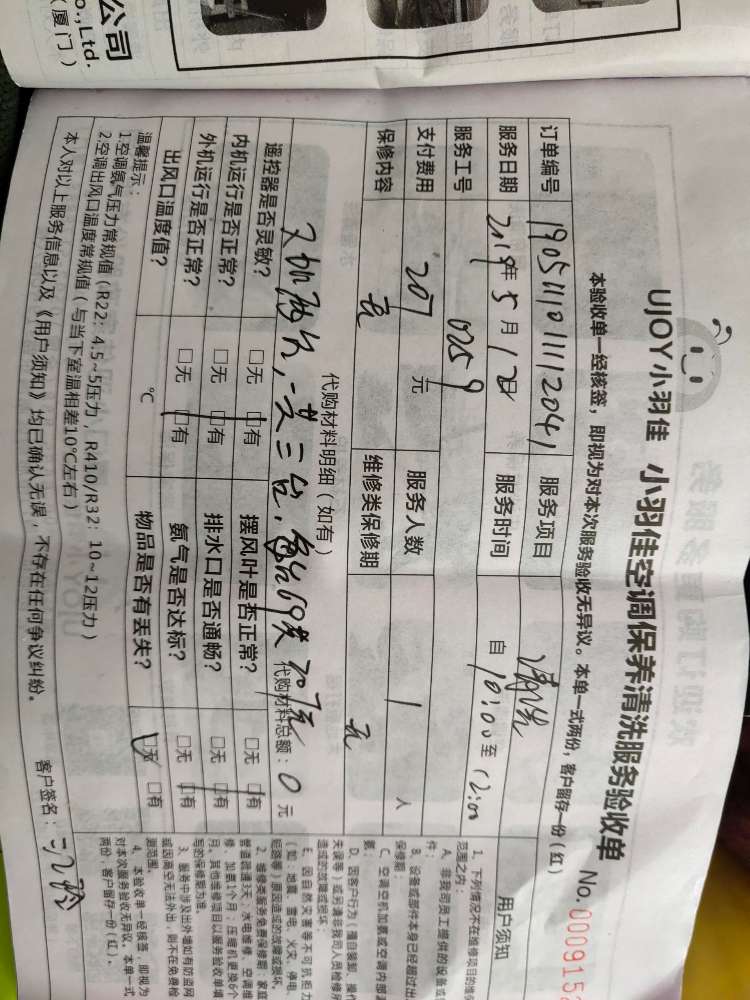 公司
o.,Ltd.
(厦门)
UJOY小羽佳 小羽佳空调保养清洗服务验收单 No.
本验收单一经核签，即视为对本次服务验收无异议。本单一式两份，客户留存一份(红)
订单编号 服务项目 清洗
服务日期 2019年5月12日 服务时间 自10:00至12:00
服务工号 0259
支付费用 207元 服务人数 1人
保修内容 无 维修类保修期 无
代购材料明细(如有)
又加两台，一共三台，每台69共207元
代购材料总额：0元
遥控器是否灵敏？ □无 □有 摆风叶是否正常？ □无 □有
内机运行是否正常？ □无 □有 排水口是否通畅？ □无 □有
外机运行是否正常？ □无 □有 氨气是否达标？ □无 □有
出风口温度值？ ℃ 物品是否有丢失？ □无 □有
温馨提示：
1.空调氨气压力常规值(R22：4.5~5压力，R410/R32：10~12压力)
2.空调出风口温度常规值(与当下室温相差10℃左右)
本人对以上服务信息以及《用户须知》均已确认无误，不存在任何争议纠纷。
客户签名：
用户须知
1、下列情况不在维修项目的维保
范围之内：
A、非我司员工提供的设备或
件；
B、设备或部件本身已经超过出
保修期；
C、空调空机加氨或空调内部
氨；
D、因客户行为(擅自装卸、操作
失误等)或另请非我司人员检修所
造成的故障或损坏
E、因自然灾害等不可抗拒力
(如：地震、雷电、火灾、停电、
短路等)原因造成的故障或损坏。
2、维修类服务免费保修期：家庭
管道疏通3天；水电维修、空调维
修、加氨1个月；压缩机更换6个
月。其他维修项目以服务验收单填
写的保修期为准。
3、服务中涉及出外墙如有防盗网
或因高空无法外出，则不在免费检
查范围。
4、本验收单一经核签，即视为
对本次服务验收无异议，本单一式
两份，客户留存一份(红)。